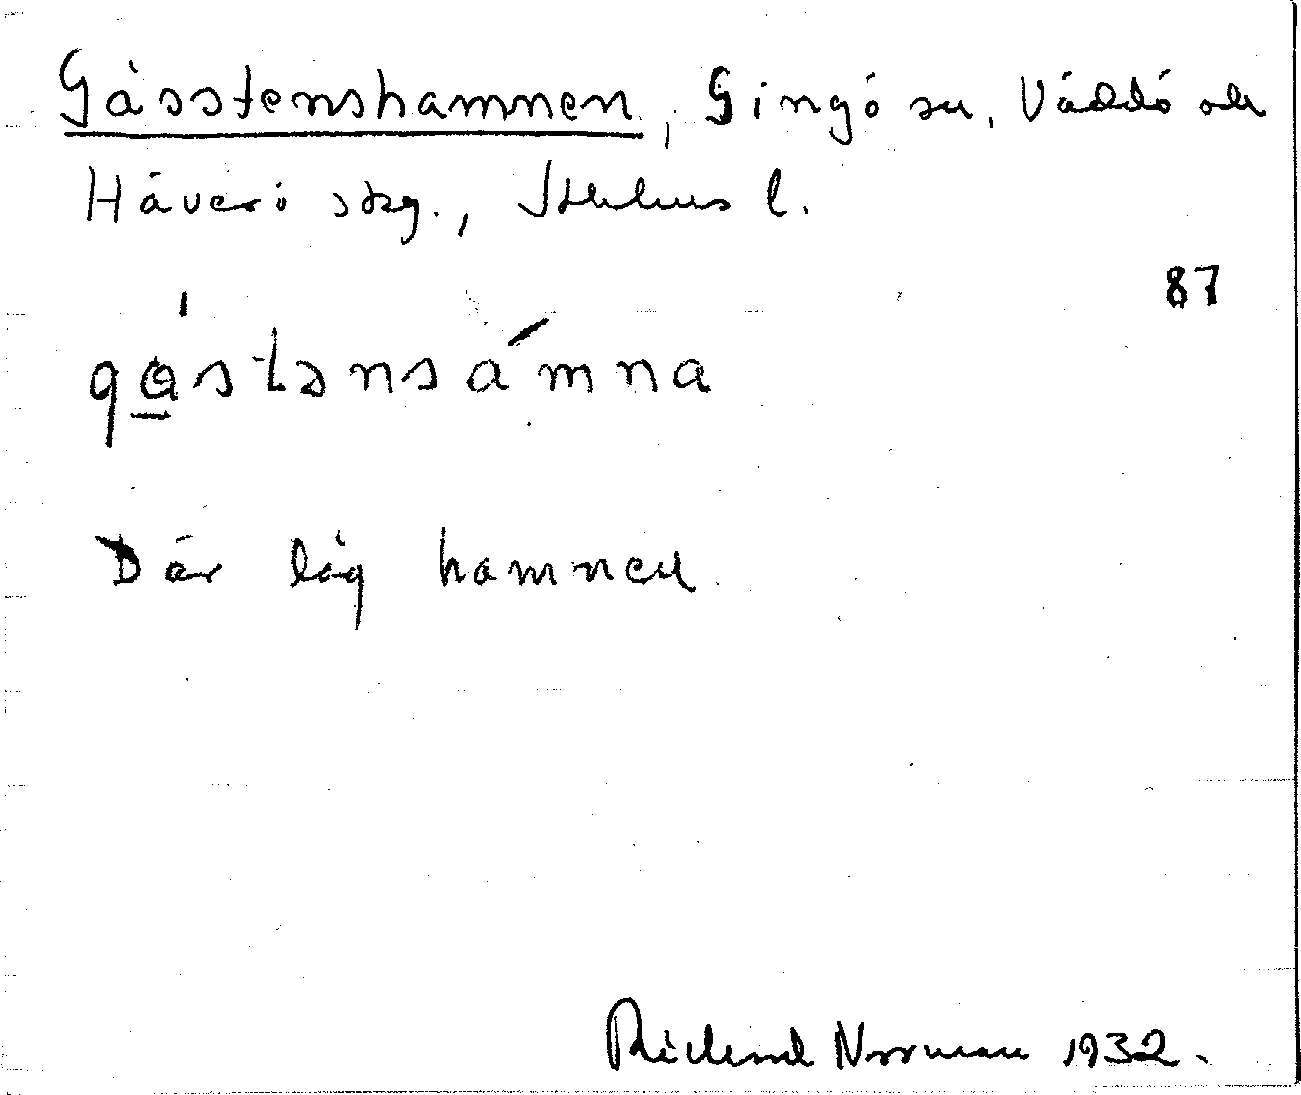 Gåsstenshamnen, Singö sn, Väddö och
Häverö skg., Sthlms l.
87
gå̲stənsámna
Där låg hamnen
Rickard Norrman 1932.